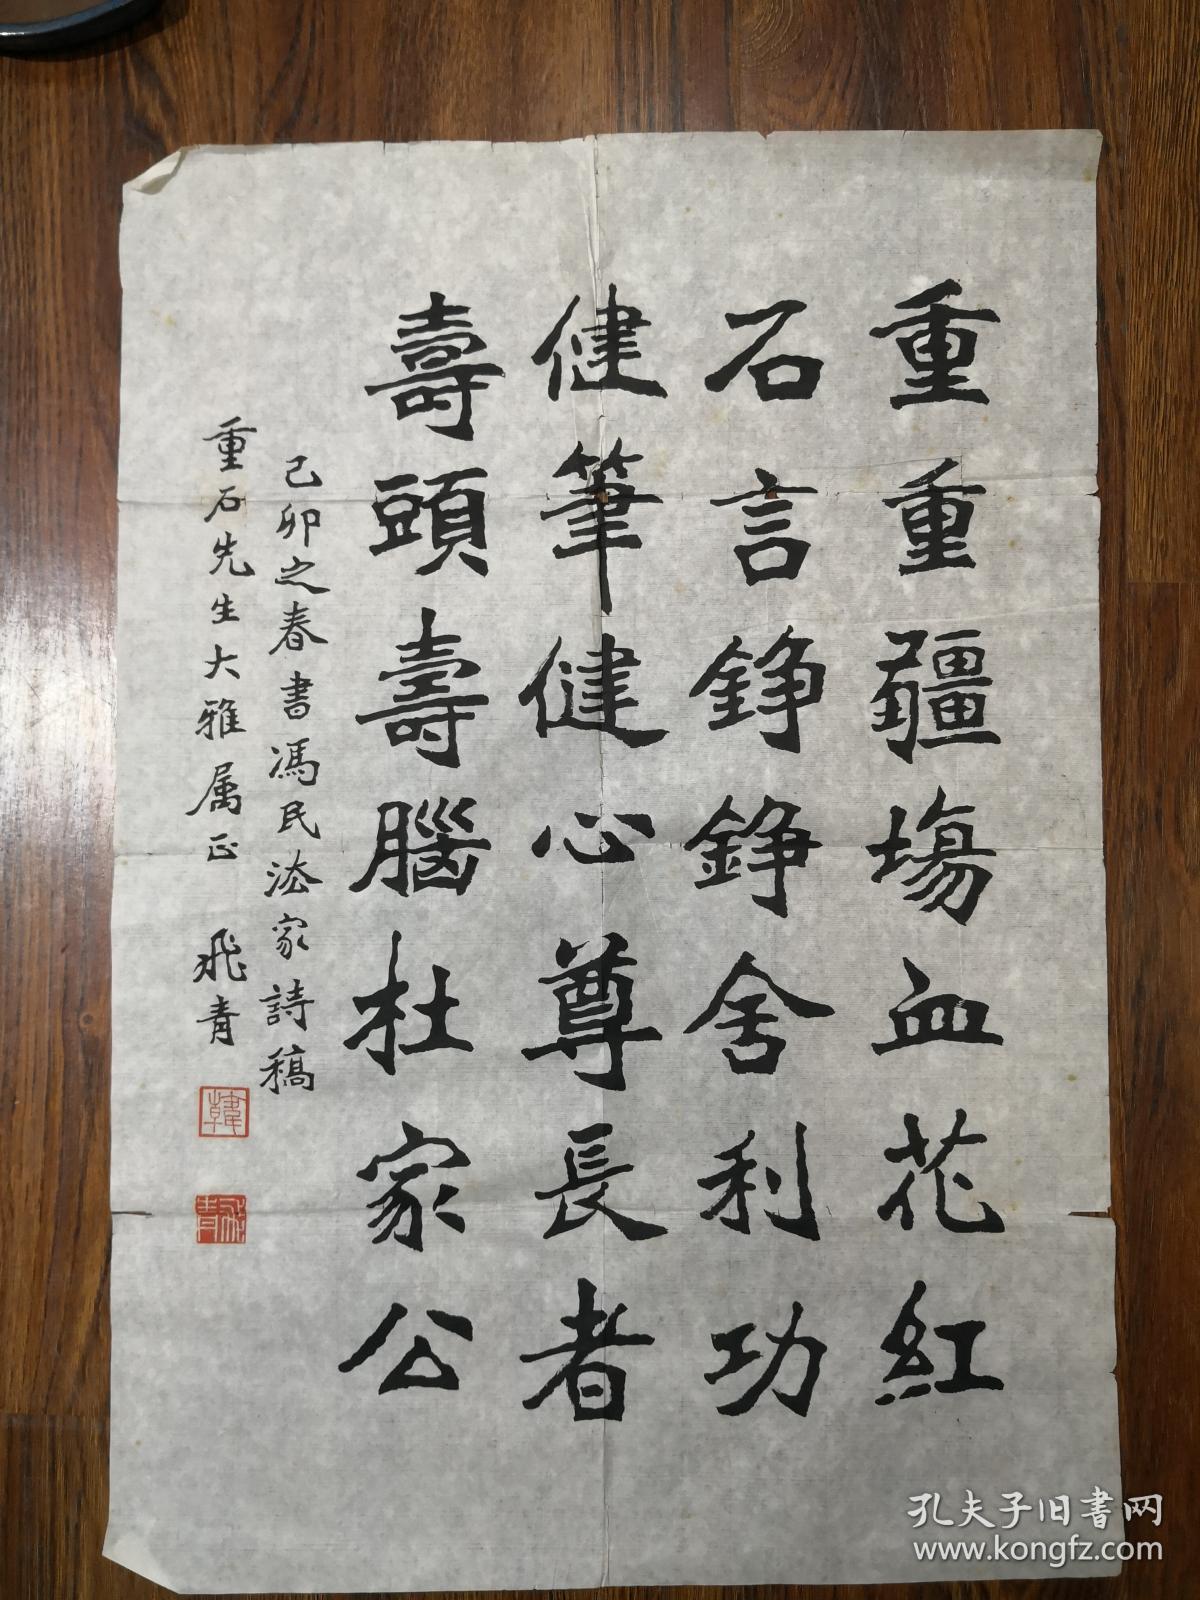 重重疆場血花紅
石言錚錚舍利功
健筆健心尊長者
壽頭壽腦杜家公
己卯之春書馮民法家詩稿
重石先生大雅属正 飛青
韓
飛青
孔夫子旧書网
www.kongfz.com